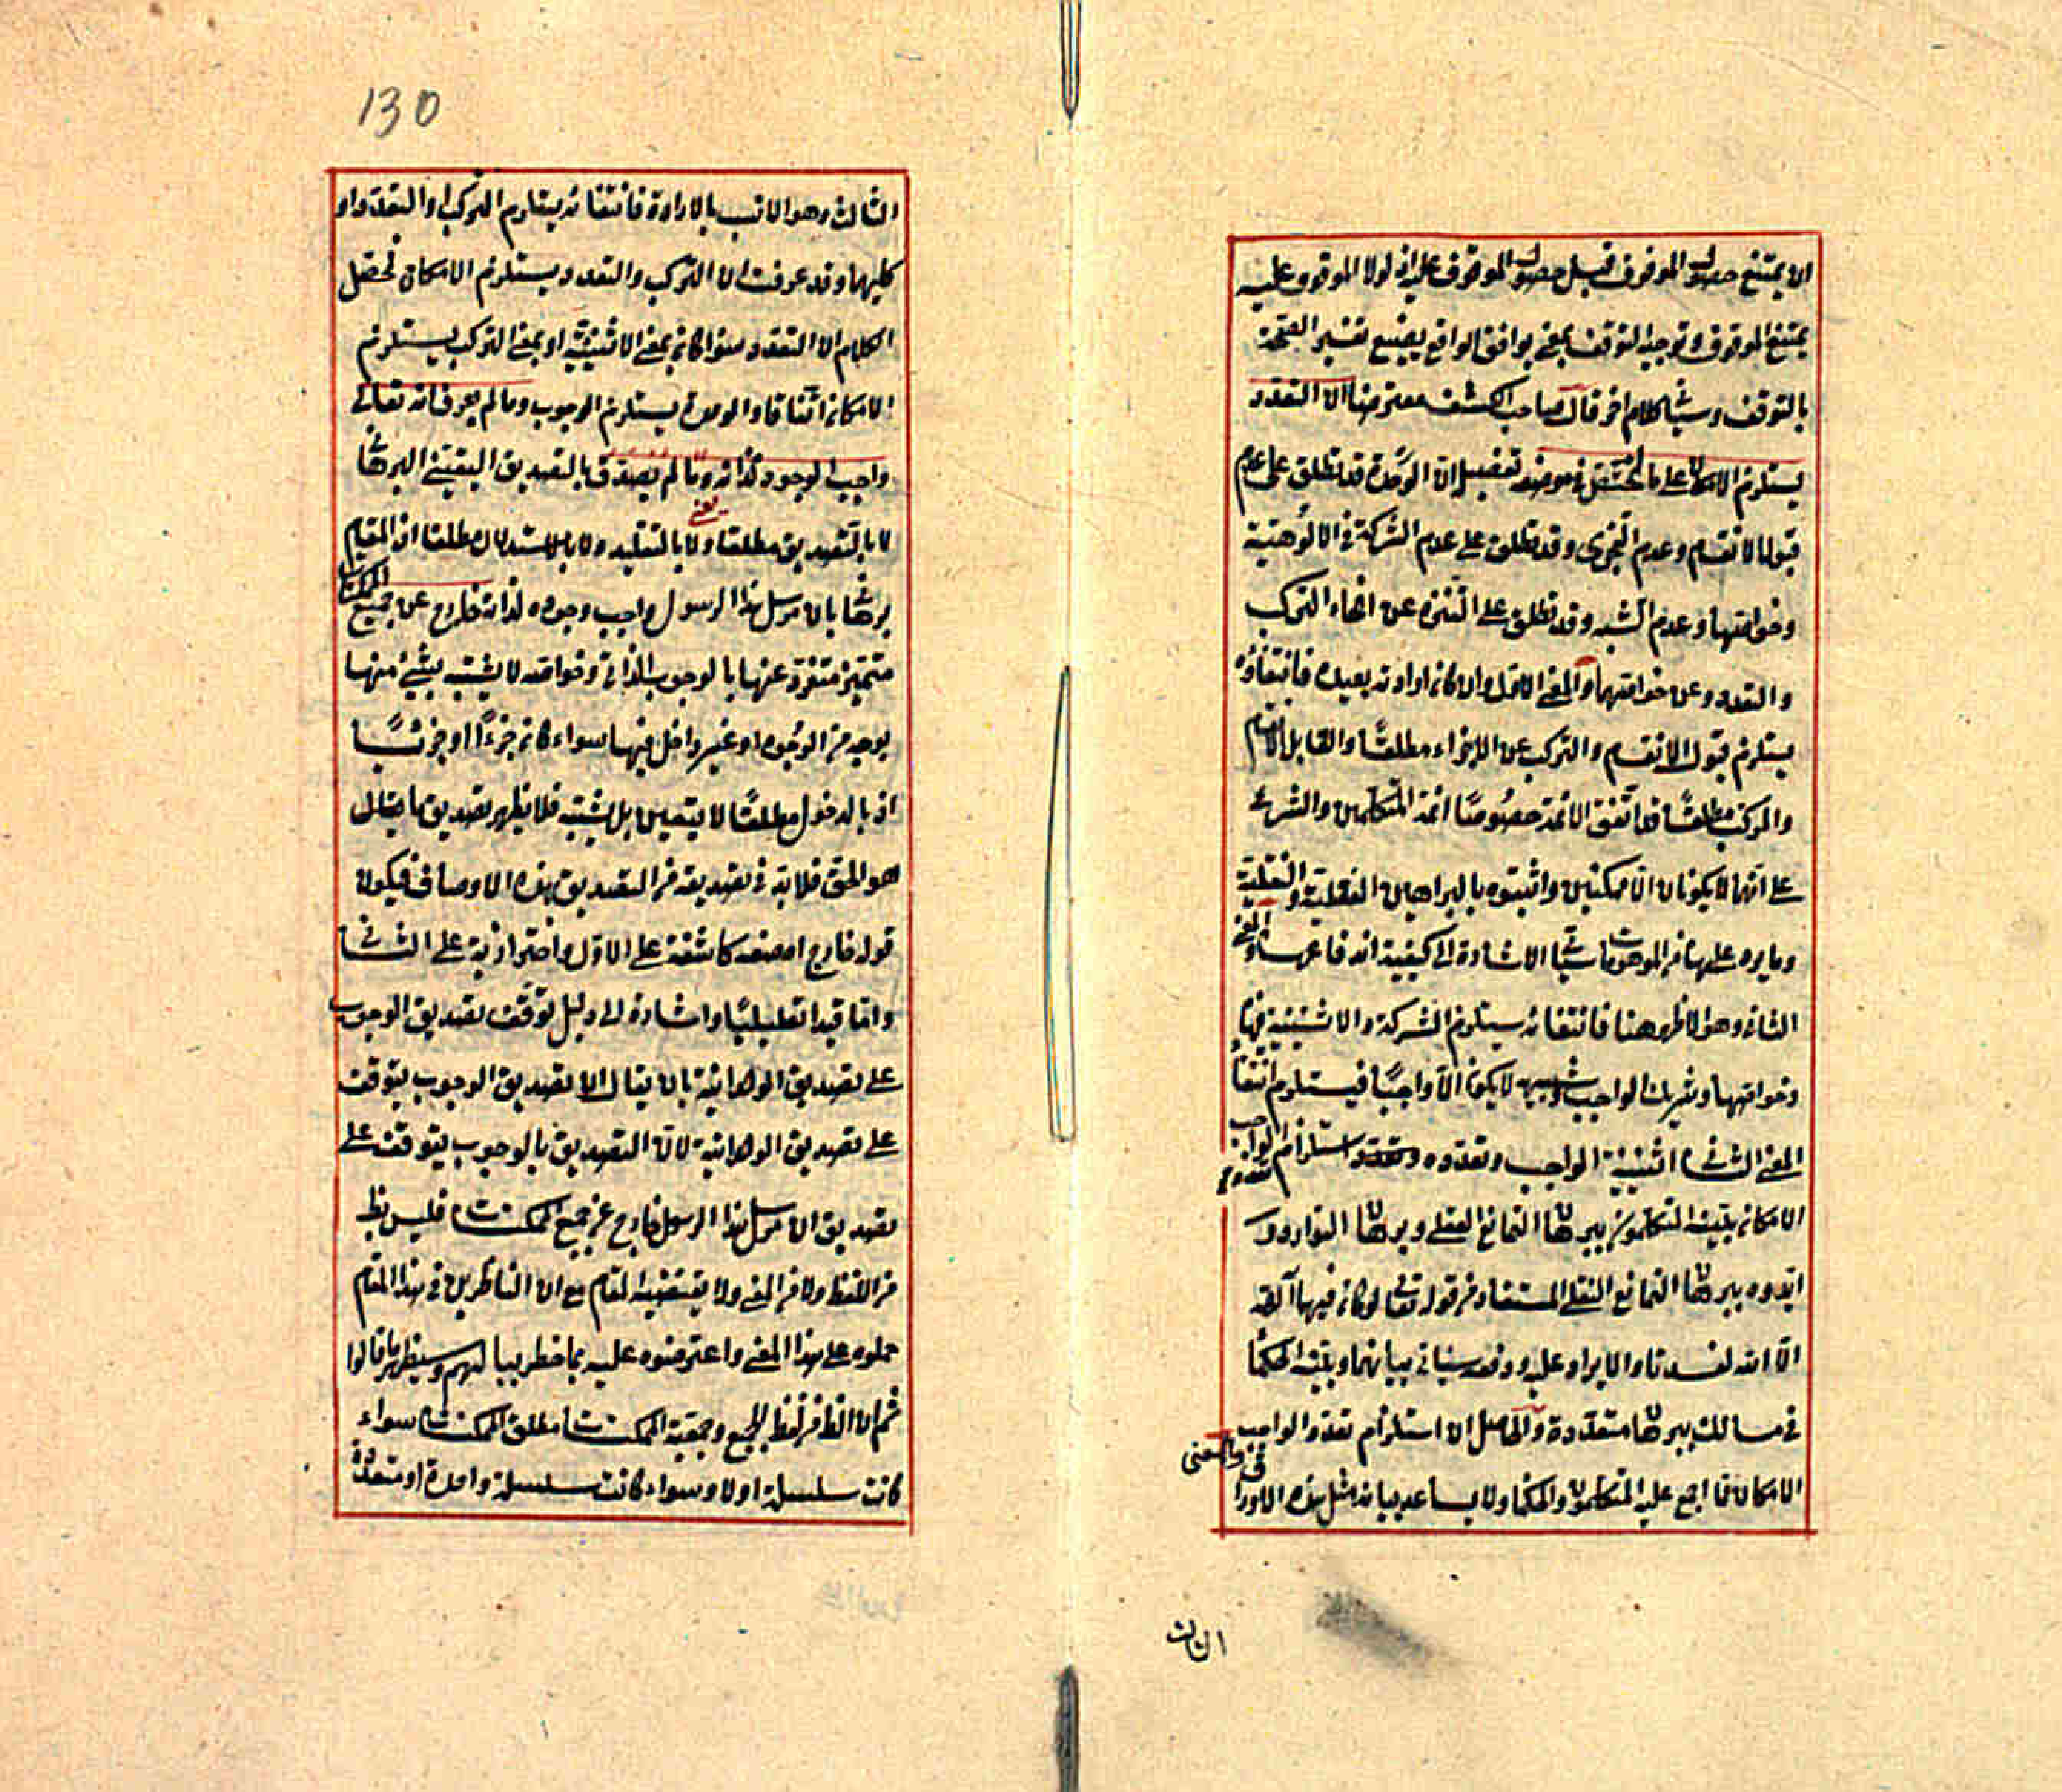 الا يمتنع حصول الموقوف قبل حصول الموقوف عليه اذ لولا الموقوف عليه
يمتنع الموقوف وتوجيه التوقف بمعنى يوافق الواقع تفسير الصحة
بالتوقف وسيأتى كلام اخر قال صاحب الكشف معترضا ان التعدد
يستلزم الامكان على ما فى موضعه تفصيل ان الوحدة قد تطلق على عدم
قبول الانقسام وعدم التجزى وقد تطلق على عدم الشركة فى الالوهية
وخواصها وعدم الشبه وقد تطلق على التنزه عن انحاء التركب
والتعدد وعن خواصهما والمعنى الاول وان كان ارادته بعيدة فانتفاؤه
يستلزم قبول الانقسام والتركب عن الاجزاء مطلقا والقابل للانقسام
والمركب مطلقا مما اتفق الائمة خصوصا ائمة المتكلمين والشرع
على انهما لا يكونان الا ممكنين واثبتوه بالبراهين العقلية والنقلية
وما يرد عليها من الموهومات سيأتى الاشارة الى كيفية اندفاعها والمعنى
الثانى وهو الاظهر هنا فانتفائه سيتلزم الشركة والاثنينية فيها
وخواصها وشريك الواجب وشبيهه لا يكون الا واجبا فيستلزم انتفاء
المعنى الثانى اثنينية الواجب وتعدده واستلزام تعدد الواجب
الامكان يثبته المتكلمون ببرهان التمانع العقلى وبرهان التوارد وقد
ايدوه ببرهان التمانع النقلى المستفاد من قوله تعالى لو كان فيهما آلهة
الا الله لفسدتا والايراد عليه ودفعه سيأتى بيانهما ويثبته الحكماء
فى مسالك ببرهان متعددة والحاصل ان استلزام تعدد الواجب
الامكان مما اجمع عليه المتكلمون والحكماء ولا يساعد بيانه مثل هذه الاوراق والمعنى
الثالث
130
الثالث وهو الانسب بالارادة فانتفائه يستلزم التركب او التعدد او
كليهما وقد عرفت ان التركب والتعدد يستلزم الامكان فحصل
الكلام ان التعدد سواء كان بمعنى الاثنينية او بمعنى التركب يستلزم
الامكان اتفاقا والوحدة يستلزم الوجوب وما لم يعرف انه تعالى
واجب الوجود لذاته وما لم يصدق بالتصديق اليقينى البرهانى
يعنى
لا بالتصديق مطلقا ولا بالتقليد ولا بالاستدلال مطلقا اذ المقام
برهانى بان مرسل هذا الرسول واجب وجوده لذاته خارج عن جميع الممكنات
متميز متفرد عنها بالوجوب الذاتى وخواصه لا يشبه بشىء منها
بوجه من الوجوه او غير داخل فيها سواء كان جزءا او جزئيا
اذ بالدخول مطلقا لا يتعين بل يشتبه فلا يظهر تصديق ما يقال
هو الحق فلا بد فى تصديقه من التصديق بهذه الاوصاف فيكون
قوله خارج اه صفة كاشفة على الاول واحترازية على الثانى
واما قيدا تعليليا واشارة الى دليل توقف تصديق الوجوب
على تصديق الوحدانية بان يقال ان تصديق الوجوب يتوقف
على تصديق الوحدانية لان التصديق بالوجوب يتوقف على
تصديق ان مرسل هذا الرسول خارج عن جميع الممكنات فليس بظ
من اللفظ ولا من المعنى ولا يقتضيه المقام مع ان الناظرين فى هذا المقام
حملوه على هذا المعنى واعترضوه عليه بما خطر ببالهم وسيظهر ما قالوا
ثم ان الظ من لفظ الجميع وجمعية الممكنات مطلق الممكنات سواء
كانت سلسلة اولا وسواء كانت سلسلة واحدة او متعددة